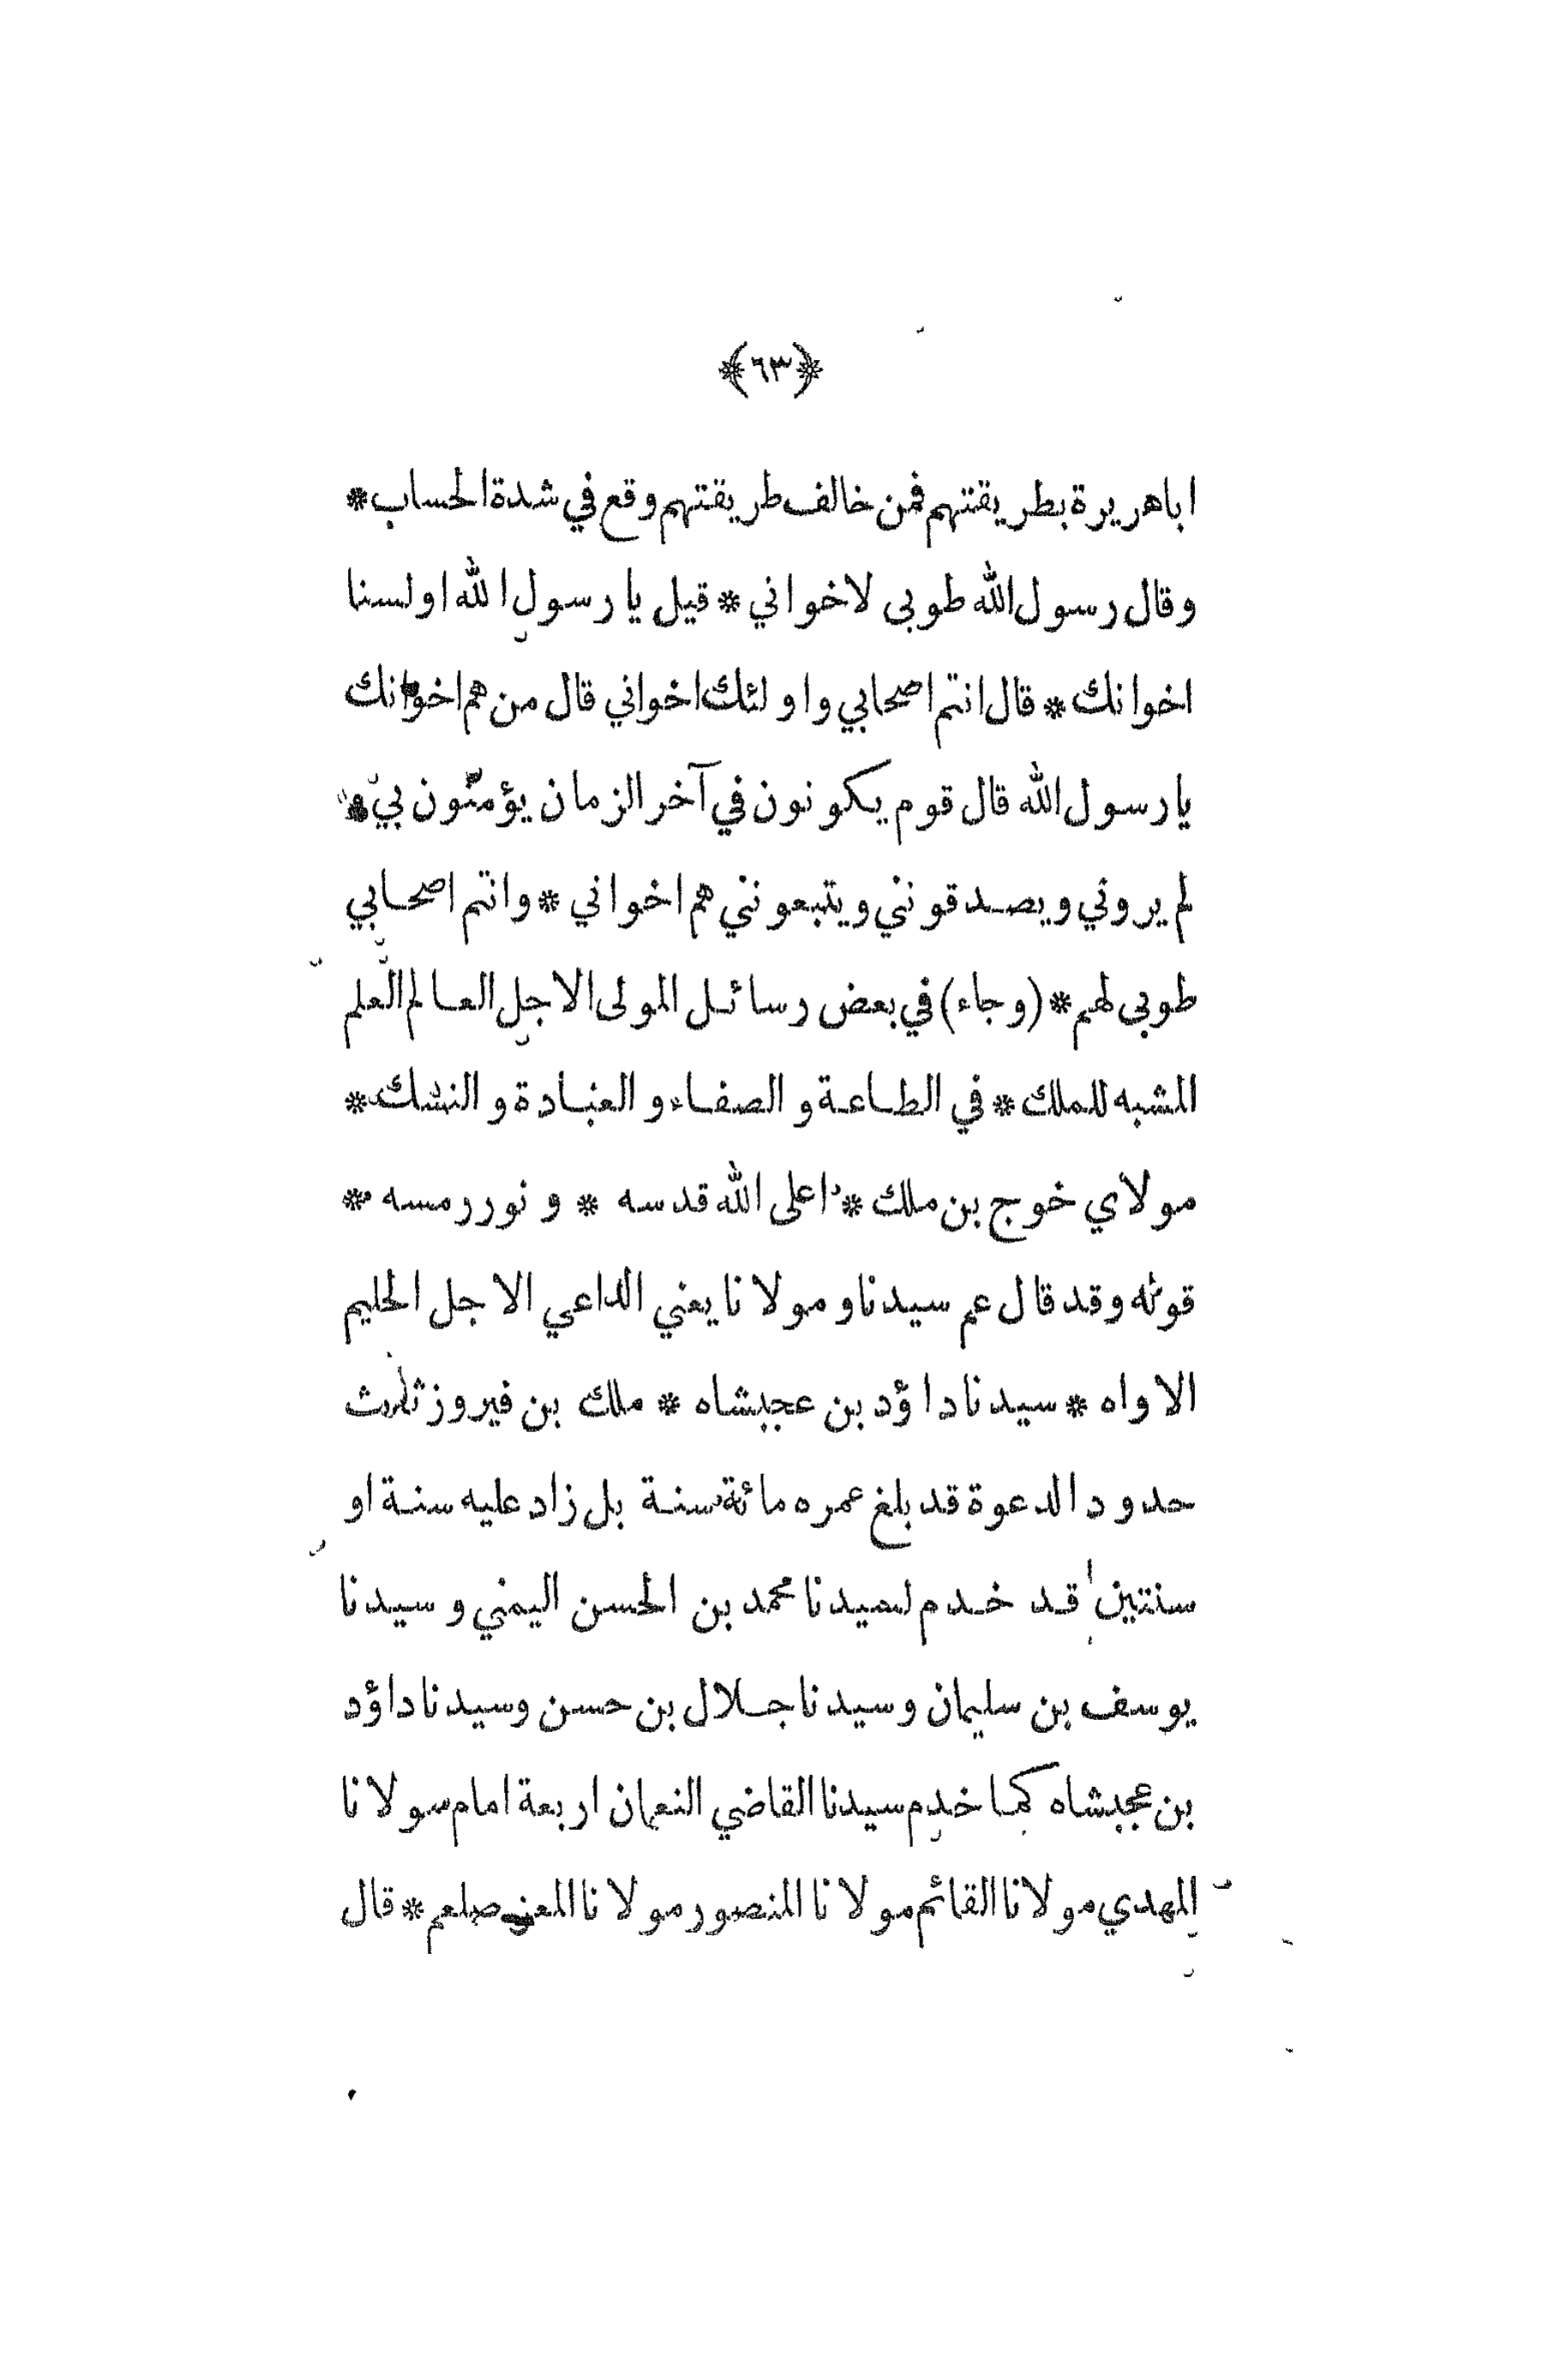 ﴿٦٣﴾
اباهريرة بطريقتهم فمن خالف طريقتهم وقع في شدة الحساب *
وقال رسول الله طوبى لاخواني * قيل يا رسول الله اولسنا
اخوانك * قال انتم اصحابي واولئك اخواني قال من هم اخوانك
يا رسول الله قال قوم يكونون في آخر الزمان يؤمنون بي و
لم يروني ويصدقونني ويتبعونني هم اخواني * وانتم اصحابي
طوبى لهم * (وجاء) في بعض رسائل المولى الاجل العالم العلم
المشبه للملك * في الطاعة و الصفاء و العبادة و النسك *
مولاي خوج بن ملك * اعلى الله قدسه * و نور رمسه *
قوله وقد قال عم سيدنا و مولانا يعني الداعي الاجل الحليم
الاواه * سيدنا داؤد بن عجبشاه * ملك بن فيروز ثالث
حدود الدعوة قد بلغ عمره مائة سنة بل زاد عليه سنة او
سنتين قد خدم لسيدنا محمد بن الحسن اليمني و سيدنا
يوسف بن سليمان و سيدنا جلال بن حسن وسيدنا داؤد
بن عجبشاه كما خدم سيدنا القاضي النعمان اربعة امام مولانا
المهدي مولانا القائم مولانا المنصور مولانا المعز صلعم * قال